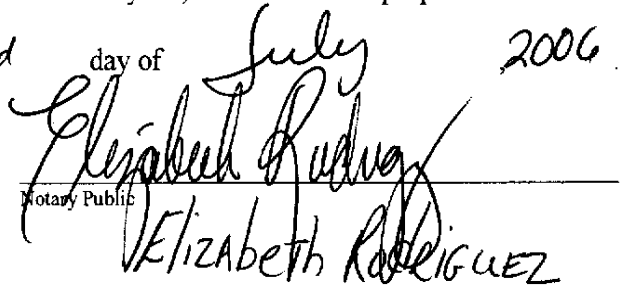 day of July 2006
Elizabeth Rodriguez
Notary Public
Elizabeth Rodriguez